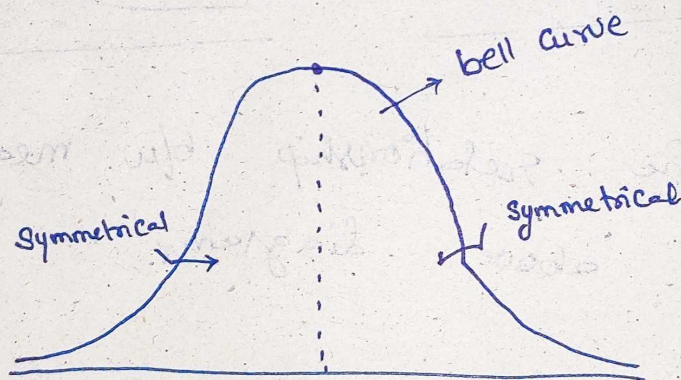 bell curve
Symmetrical
symmetrical